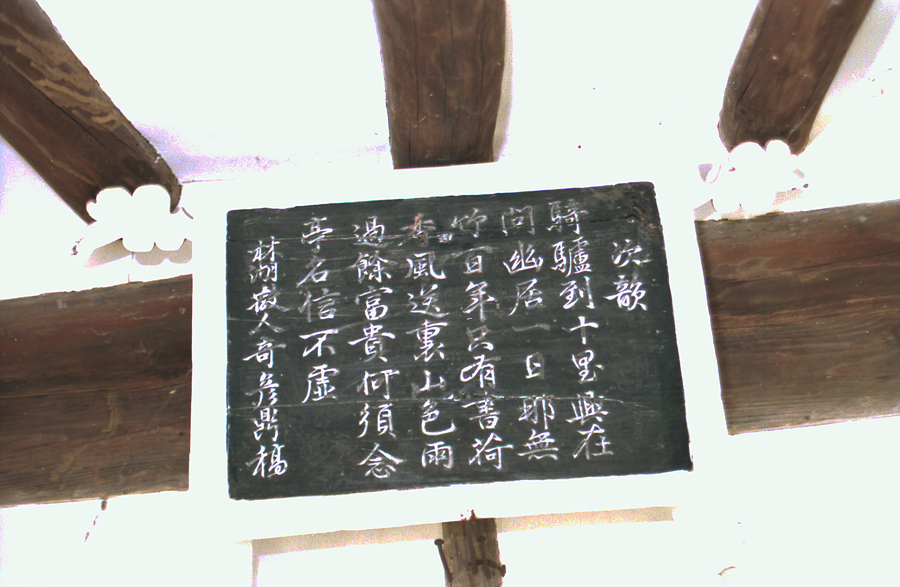 次韻
騎驢到十里興在
問幽居一日耶無
竹百年只有書荷
香風送裏山色雨
過餘富貴何須念
亭名信不虛
林湖散人奇彦鼎稿